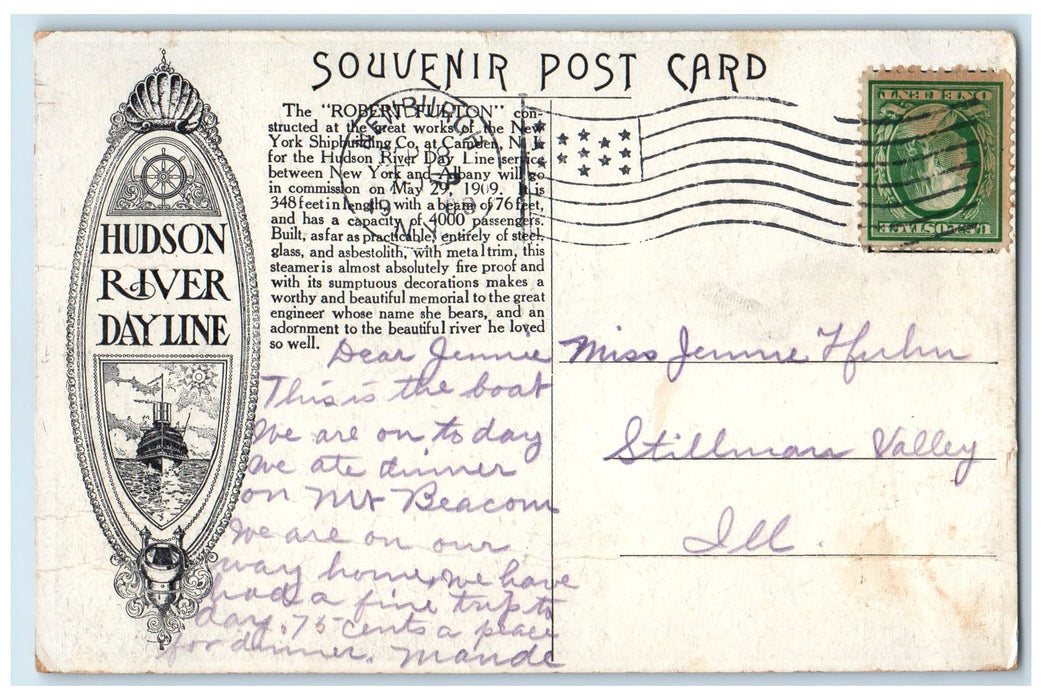 SOUVENIR POST CARD
HUDSON
RIVER
DAY LINE
The "ROBERT FULTON" con-
structed at the great works of the New
York Shipbuilding Co. at Camden, N. J.
for the Hudson River Day Line service
between New York and Albany will go
in commission on May 29, 1909. It is
348 feet in length, with a beam of 76 feet,
and has a capacity of 4000 passengers.
Built, as far as practicable, entirely of steel,
glass, and asbestolith, with metal trim, this
steamer is almost absolutely fire proof and
with its sumptuous decorations makes a
worthy and beautiful memorial to the great
engineer whose name she bears, and an
adornment to the beautiful river he loved
so well.
N.Y.
U.S. POSTAGE
ONE CENT
Dear Jennie
This is the boat
we are on to day
we ate dinner
on Mt Beacon
We are on our
way home, we have
had a fine trip to
day. 75 cents a piece
for dinner. Maude
Miss Jennie
Stillman Valley
Ill.